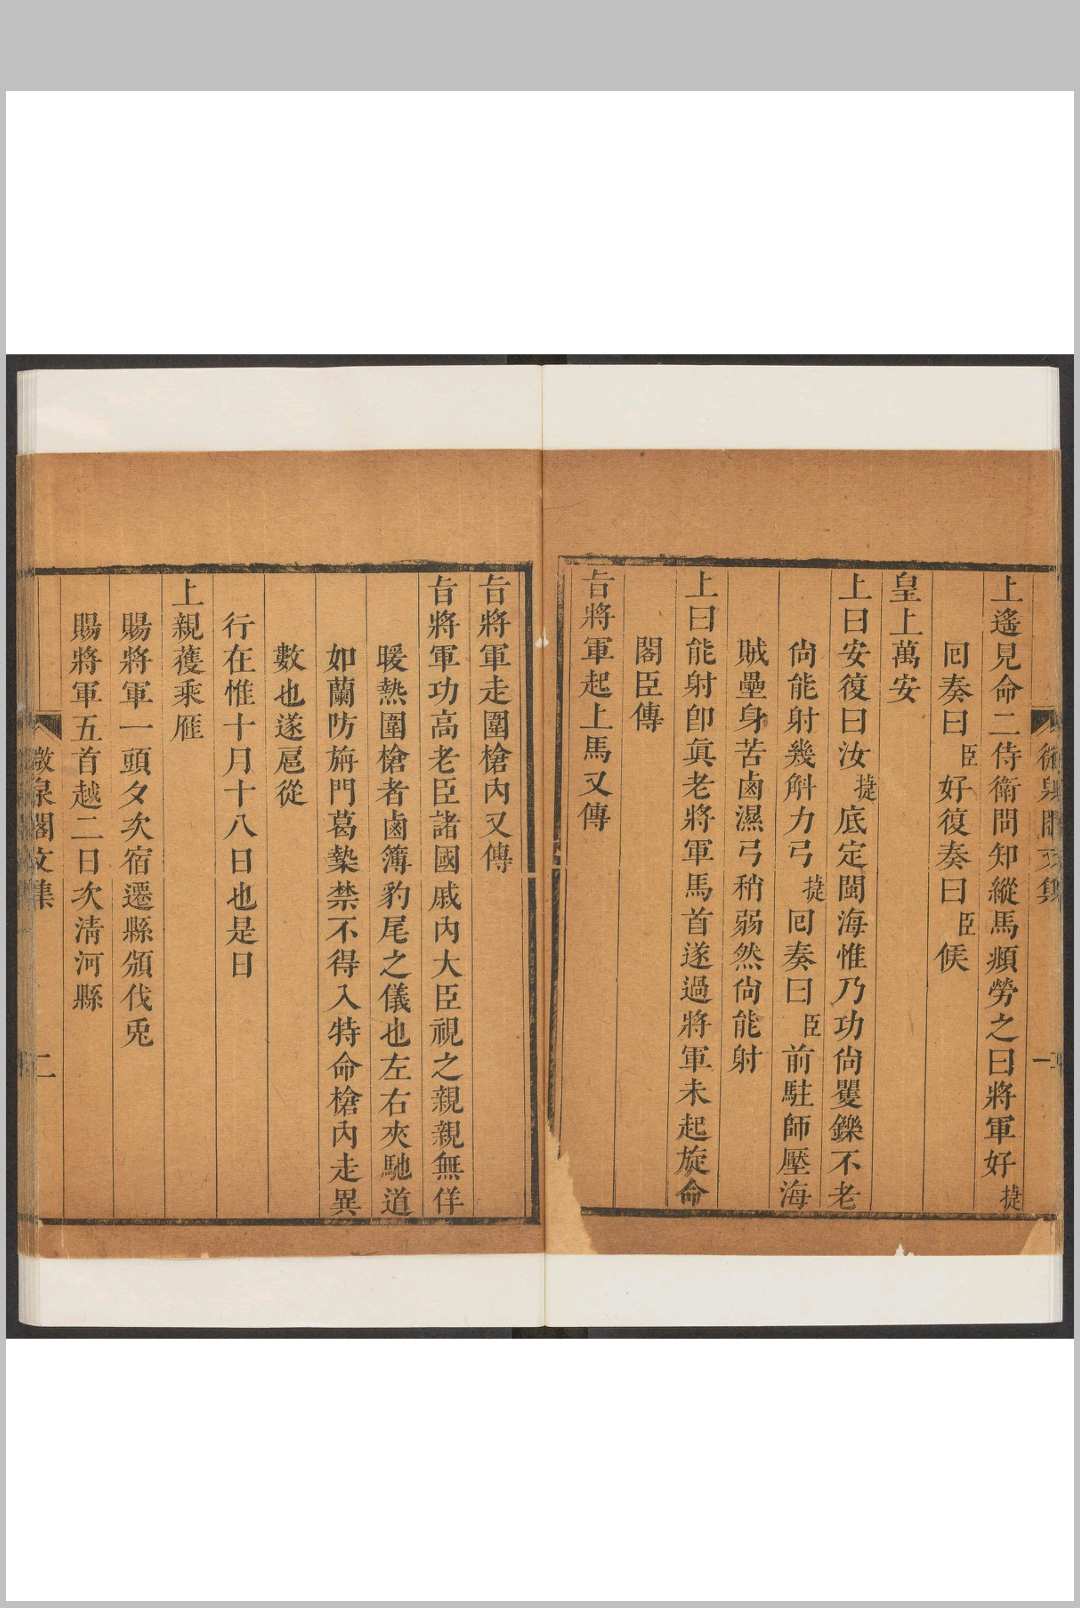 上遙見命二侍衛問知縱馬頻勞之曰將軍好捷
囘奏曰臣好復奏曰臣候
皇上萬安
上曰安復曰汝捷底定閩海惟乃功尙矍鑠不老
尙能射幾斛力弓捷囘奏曰臣前駐師壓海
賊壘身苦鹵濕弓稍弱然尙能射
上曰能射卽眞老將軍馬首遂過將軍未起旋命
閣臣傳
旨將軍起上馬又傳
旨將軍走圍槍內又傳
旨將軍功高老臣諸國戚內大臣視之親親無佯
暖熱圍槍者鹵簿豹尾之儀也左右夾馳道
如蘭防旃門葛槷禁不得入特命槍內走異
數也遂扈從
行在惟十月十八日也是日
上親獲乘雁
賜將軍一頭夕次宿遷縣頒伐兎
賜將軍五首越二日次淸河縣
泉閣文集
二